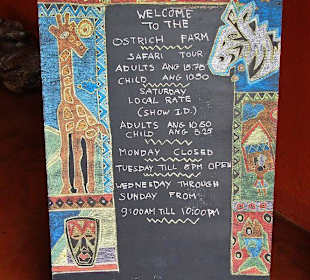 WELCOME
TO THE
OSTRICH FARM
SAFARI TOUR
ADULTS ANG 18.75
CHILD ANG 10.50
SATURDAY
LOCAL RATE
(SHOW I.D.)
ADULTS ANG 10.50
CHILD ANG 5.25
MONDAY CLOSED
TUESDAY TILL 8PM OPEN
WEDNESDAY THROUGH
SUNDAY FROM
9:00AM TILL 10:00PM